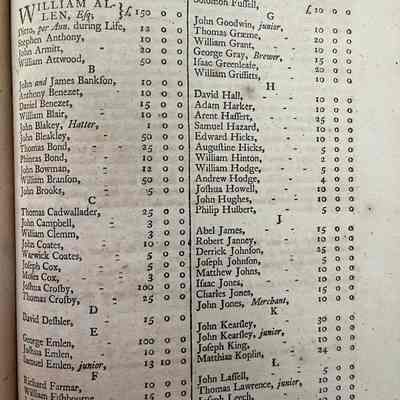 WILLIAM AL-
LEN, Esq; } £.150 0 0
Ditto, per Ann. during Life, 12 0 0
Stephen Anthony, - 10 0 0
John Armitt, - 20 0 0
William Attwood, - 50 0 0
B
John and James Bankson, 10 0 0
Anthony Benezet, - 10 0 0
Daniel Benezet, - 15 0 0
William Blair, - 10 0 0
John Blakey, Hatter, - 1 0 0
John Bleakley, - 50 0 0
Thomas Bond, - 25 0 0
Phineas Bond, - 10 0 0
John Bowman, - 12 0 0
William Branson, - 50 0 0
John Brooks, - 5 0 0
C
Thomas Cadwallader, 25 0 0
John Campbell, - 3 0 0
William Clemm, - 3 0 0
John Coates, - 10 0 0
Warwick Coates, - 5 0 0
Joseph Cox, - 5 0 0
Moses Cox, - 3 0 0
Joshua Crosby, - 100 0 0
Thomas Crosby, - 25 0 0
D
David Deshler, - 15 0 0
E
George Emlen, - 100 0 0
Joshua Emlen, - 10 0 0
Samuel Emlen, junior, 13 10 0
F
Richard Farmar, - 10 0 0
William Fishbourne, 15 0 0
Solomon Fussell, £.10 0 0
G
John Goodwin, junior, 10 0 0
Thomas Græme, - 20 0 0
William Grant, - 20 0 0
George Gray, Brewer, - 15 0 0
Isaac Greenleafe, - 20 0 0
William Griffitts, - 10 0 0
H
David Hall, - 10 0 0
Adam Harker, - 10 0 0
Arent Hassert, - 25 0 0
Samuel Hazard, - 10 0 0
Edward Hicks, - 10 0 0
Augustine Hicks, - 5 0 0
William Hinton, - 2 0 0
William Hodge, - 5 0 0
Andrew Hodge, - 4 0 0
Joshua Howell, - 10 0 0
John Hughes, - 10 0 0
Philip Hulbert, - 5 0 0
J
Abel James, - 15 0 0
Robert Janney, - 10 0 0
Derrick Johnson, - 25 0 0
Joseph Johnson, - 5 0 0
Matthew Johns, - 10 0 0
Isaac Jones, - 10 0 0
Charles Jones, - 15 0 0
John Jones, Merchant, 10 0 0
K
John Kearsley, - 30 0 0
John Kearsley, junior, 10 0 0
Joseph King, - 10 0 0
Matthias Koplin, - 24 0 0
L
John Lassell, - 10 0 0
Thomas Lawrence, junior, 10 0 0
Joseph Leech, - 10 0 0